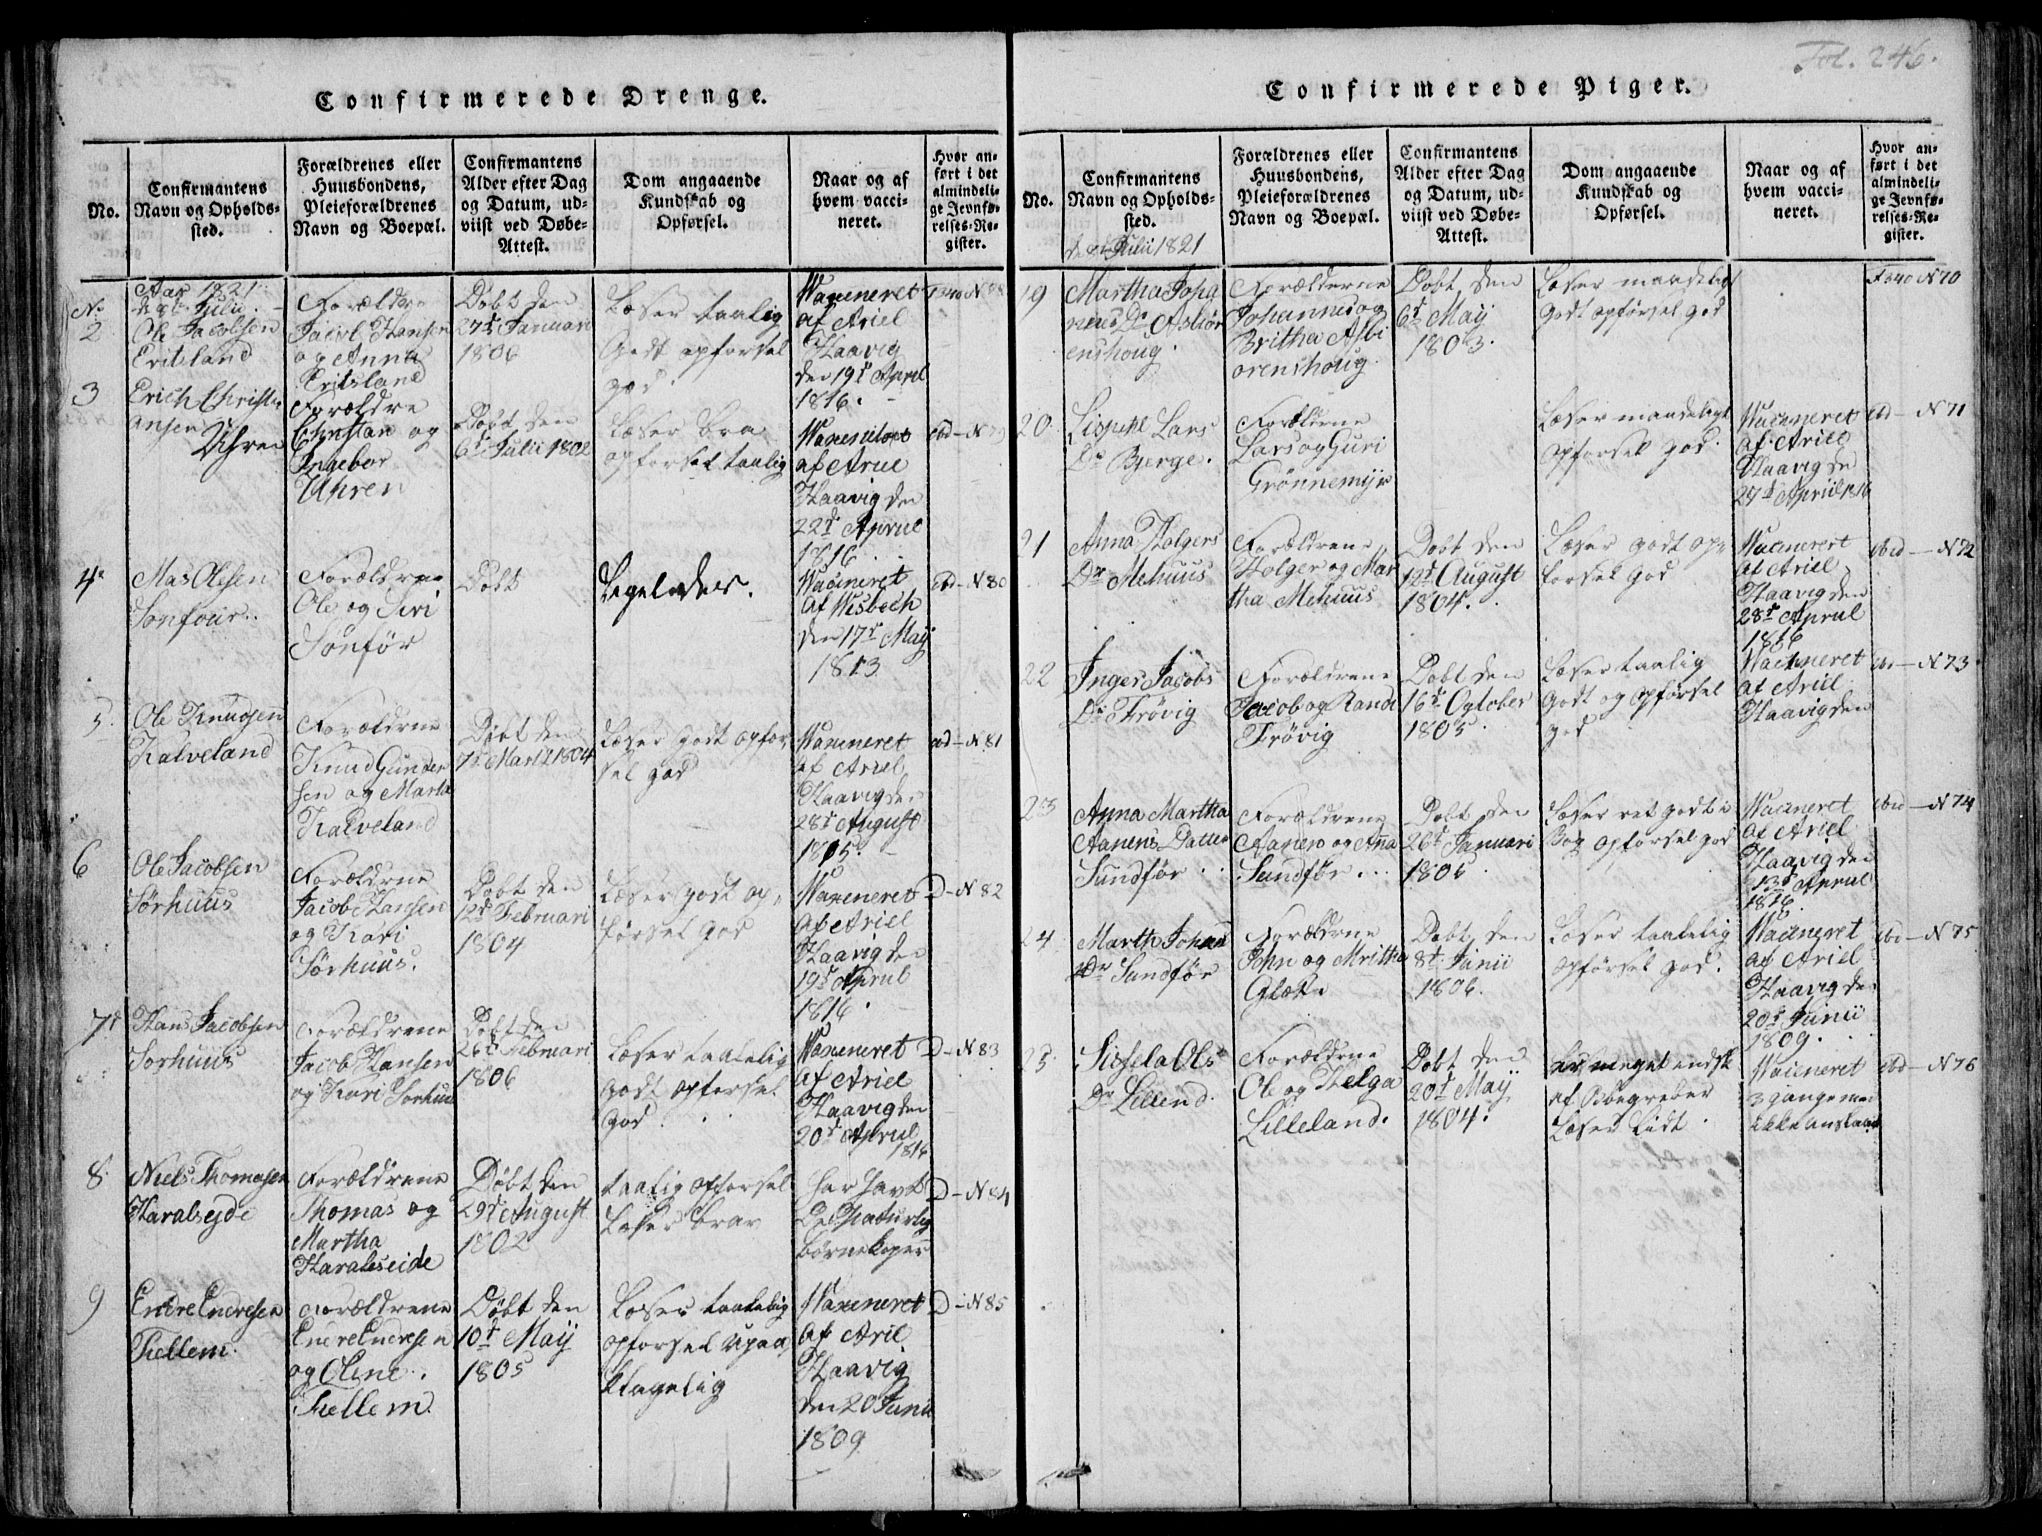 Fol. 246.
Confirmerede Drenge.
No.
Confirmantens
Navn og Opholds-
sted.
Forældrenes eller
Huusbondens,
Pleieforældrenes
Navn og Boepæl.
Confirmantens
Alder efter Dag
og Datum, ud-
viist ved Døbe-
Attest.
Dom angaaende
Kundskab og
Opførsel.
Naar og af
hvem vacci-
neret.
Hvor an-
ført i det
almindeli-
ge Jevnfø-
relses-Re-
gister.
Aar 1821
d 8de Julii
No
2
Ole Jacobsen
Eritsland
Forældre
Jacob Hansen
og Anna
Eritsland
Døbt den
27d Januari
1806
Læser taalig
Godt opførsel
god.
Waxeneret
af Ariel
Haavig
den 19d April
1816.
Fo 40 N 78
3
Erich Christi
ansen
Uhren
Forældre
Christan og
Ingebor
Uhren
Døbt den
6d Julii 1802
Læser bra
opførsel taalig
Waxeneret
af Ariel
Haavig den
22d Aprul
1816
ibd - N 79
4
Mas Olesen
Sonfour
Forældrne
Ole og Siri
Sønfør
Døbt
Ligeledes.
Wacineret
af Wesboch
den 17d Maij
1813
ibd - N 80
5.
Ole Knudsen
Kalveland
Forældrne
Knud Gunder
sen og Marta
Kalveland
Døbt den
7d Marti 1804
Læser godt opfør
sel god
Waxeneret
af Ariel
Haavig den
28d August
1815.
ibd - N 81
6
Ole Jacobsen
Sørhuus
Forældrne
Jacob Hansen
og Kari
Sørhuus.
Døbt den
12d Februari
1804
Læser godt op-
førsel god
Waxeneret
af Ariel
Haavig den
19d Aprul
1816.
D - N 82
7d
Hans Jacobsen
Sorhuus
Forældrene
Jacob Hansen
og Kari Sorhuus
Døbt den
26d Februari
1806
Læser taalelig
godt opførsel
god.
Waxeneret
af Ariel
Haavig den
20d Aprul
1816
D - N 83
8.
Niels Thomasen
Haralsejde
Forældrene
Thomas og
Martha
Haralseide
Døbt den
29d August
1802
taalig opførsel
Læser brav
har havt
De Naturlig
børnekoper
D - N 84
9
Endre Endresen
Tiellem.
Forældrene
Endre Endresen
og Eline.
Tiellem.
Døbt den
10d Maij
1805
Læser taalelig
opførsel upaa
klagelig
Waxeneret
af Aril
Haavig
den 20 Junii
1809
D - N 85
Confirmerede Piger.
No.
Confirmantens
Navn og Opholds-
sted.
Forældrenes eller
Huusbondens,
Pleieforældrenes
Navn og Boepæl.
Confirmantens
Alder efter Dag
og Datum, ud-
viist ved Døbe-
Attest.
Dom angaaende
Kundskab og
Opførsel.
Naar og af
hvem vacci-
neret.
Hvor an-
ført i det
almindeli-
ge Jevnfø-
relses-Re-
gister.
den 8d Julii 1821
19
Martha Joha
nens Dr Asbiør
enshoug.
Forælderne
Johannes og
Britha Asbi
orenshoug.
Døbt den
6d May
1803.
Læser maadelig
Godt opførsel god
Fo 40 N 70
20.
Lispeht Lars
Dr Bjerge.
Forældrne
Lars og Guri
Grønnemyr
Læser maadeligt
opførsel god.
Wacineret
af Ariel
Haavig de
27d Apriil 1816
ibd - N 71
21
Anna Holgers
Dr Mehuus
Forældrene
Holger og Mar
tha Mehuus
Døbt den
12d August
1804.
Læser godt op-
førsel god
Wacineret
af Ariel
Haavig den
28d Aprul
1816
ibid - N 72
22
Inger Jacobs
Dr Frøvig
Forældrene
Jacob og Randi
Frøvig
Døbt den
16d Ogtober
1805.
Læser taalig
Godt og opførsel
god
Wacineret
af Ariel
Haavig den
ibi - N 73
23
Anna Martha
Aanens Datter
Sundfør
Forældrene
Aanen og Ana
Sundfør...
Døbt den
26d Januari
1806.
Læser ret godt i
Bog opførsel god
Wacineret
af Ariel
Haavig den
13d Aprul
1816.
ibid - N 74
24.
Marth Johan
Dr Sundfør
Forældrne
John og Mritha
Gløse
Døbt den
8d Junii
1806.
Læser taalelig
opførsel god.
Wacineret
af Ariel
Haavig den
20d Junii
1809.
ibid - N 75
25.
Sissela Ols
Dr Lillend.
Forældrne
Ole og Helga
Lilleland.
Døbt den
20d Maij
1804.
Er meget indsk
af Bøbegreber
Læser lidt.
Wacineret
3 gange men
ikke anslaaet
ibd - N 76